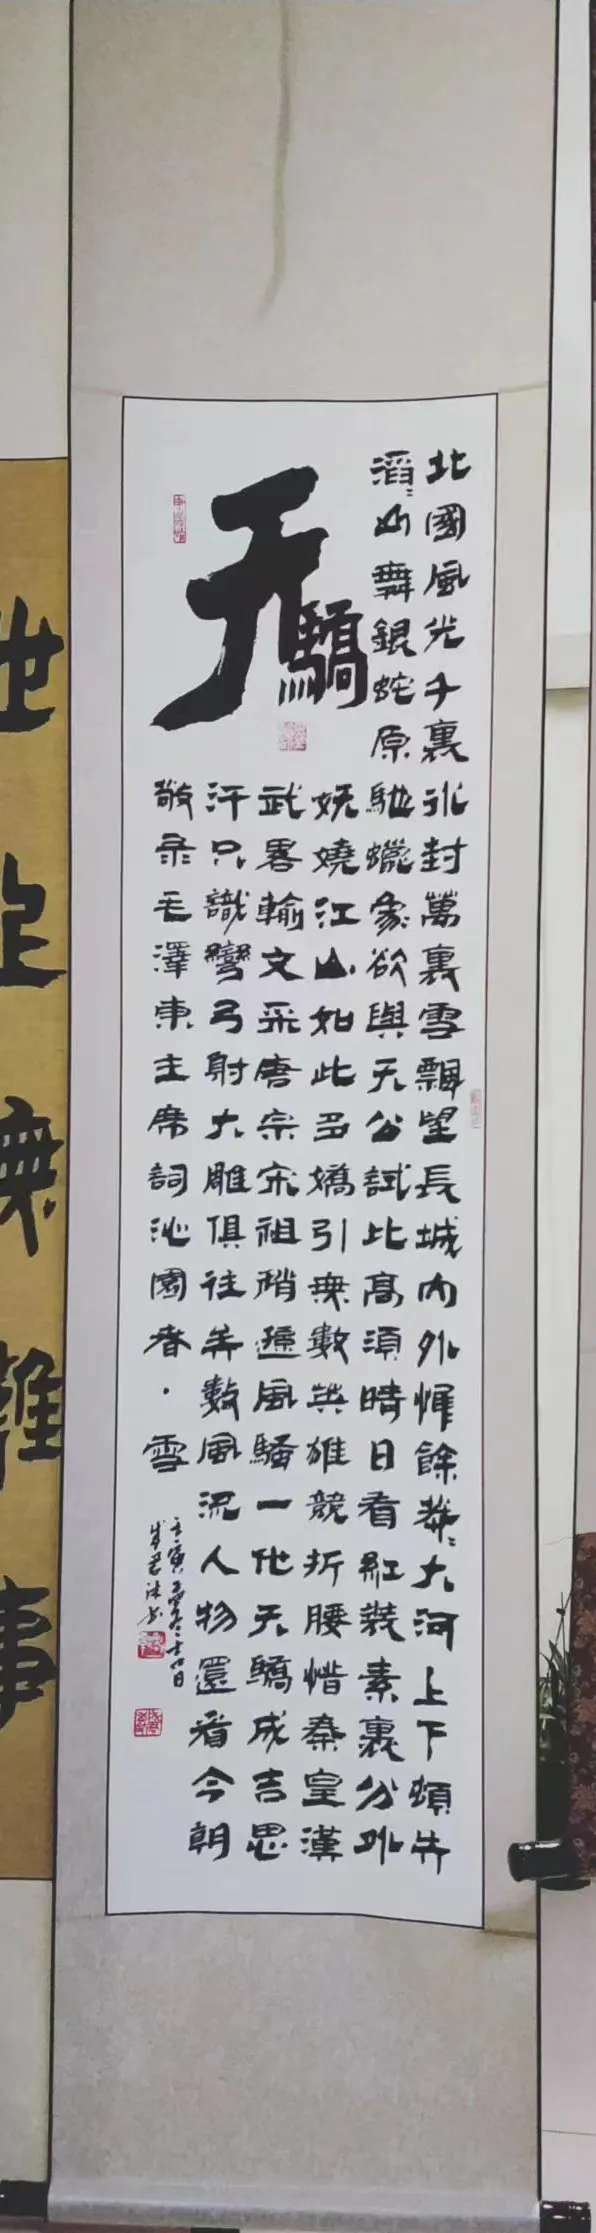 北國風光千裏冰封萬裏雪飄望長城內外惟餘莽〻大河上下頓失
滔〻山舞銀蛇原馳蠟象欲與天公試比高須晴日看紅裝素裹分外
天驕
妖嬈江山如此多嬌引無數英雄競折腰惜秦皇漢
武畧輸文采唐宗宋祖稍遜風騷一代天驕成吉思
汗只識彎弓射大雕俱往矣數風流人物還看今朝
敬录毛澤東主席詞沁園春·雪
壬寅
無難事